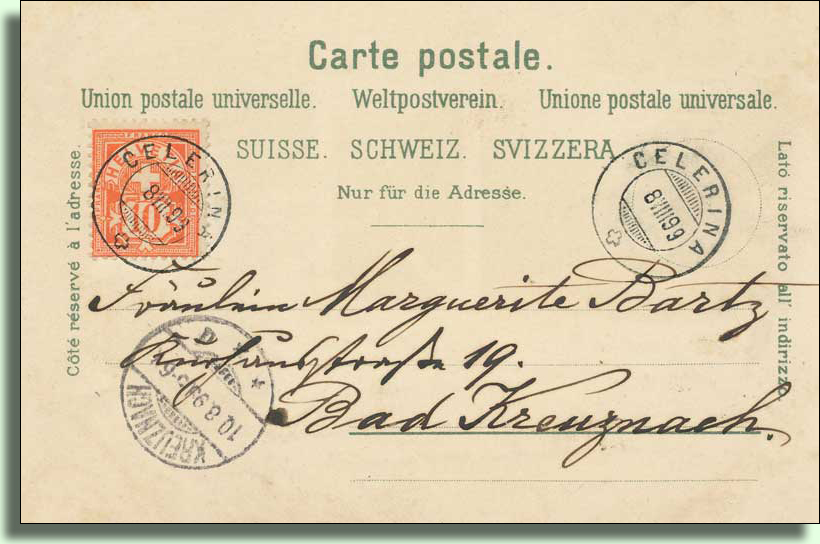 Carte postale.
Union postale universelle. Weltpostverein. Unione postale universale.
SUISSE. SCHWEIZ. SVIZZERA
Nur für die Adresse.
Côté réservé à l'adresse.
Lato riservato all' indirizzo
HELVETIA
10
CELERINA
8 VIII 99
CELERINA
8 VIII 99
Fräulein Marguerite Bartz
Kurhausstraße 19.
Bad Kreuznach.
KREUZNACH
10.8.99